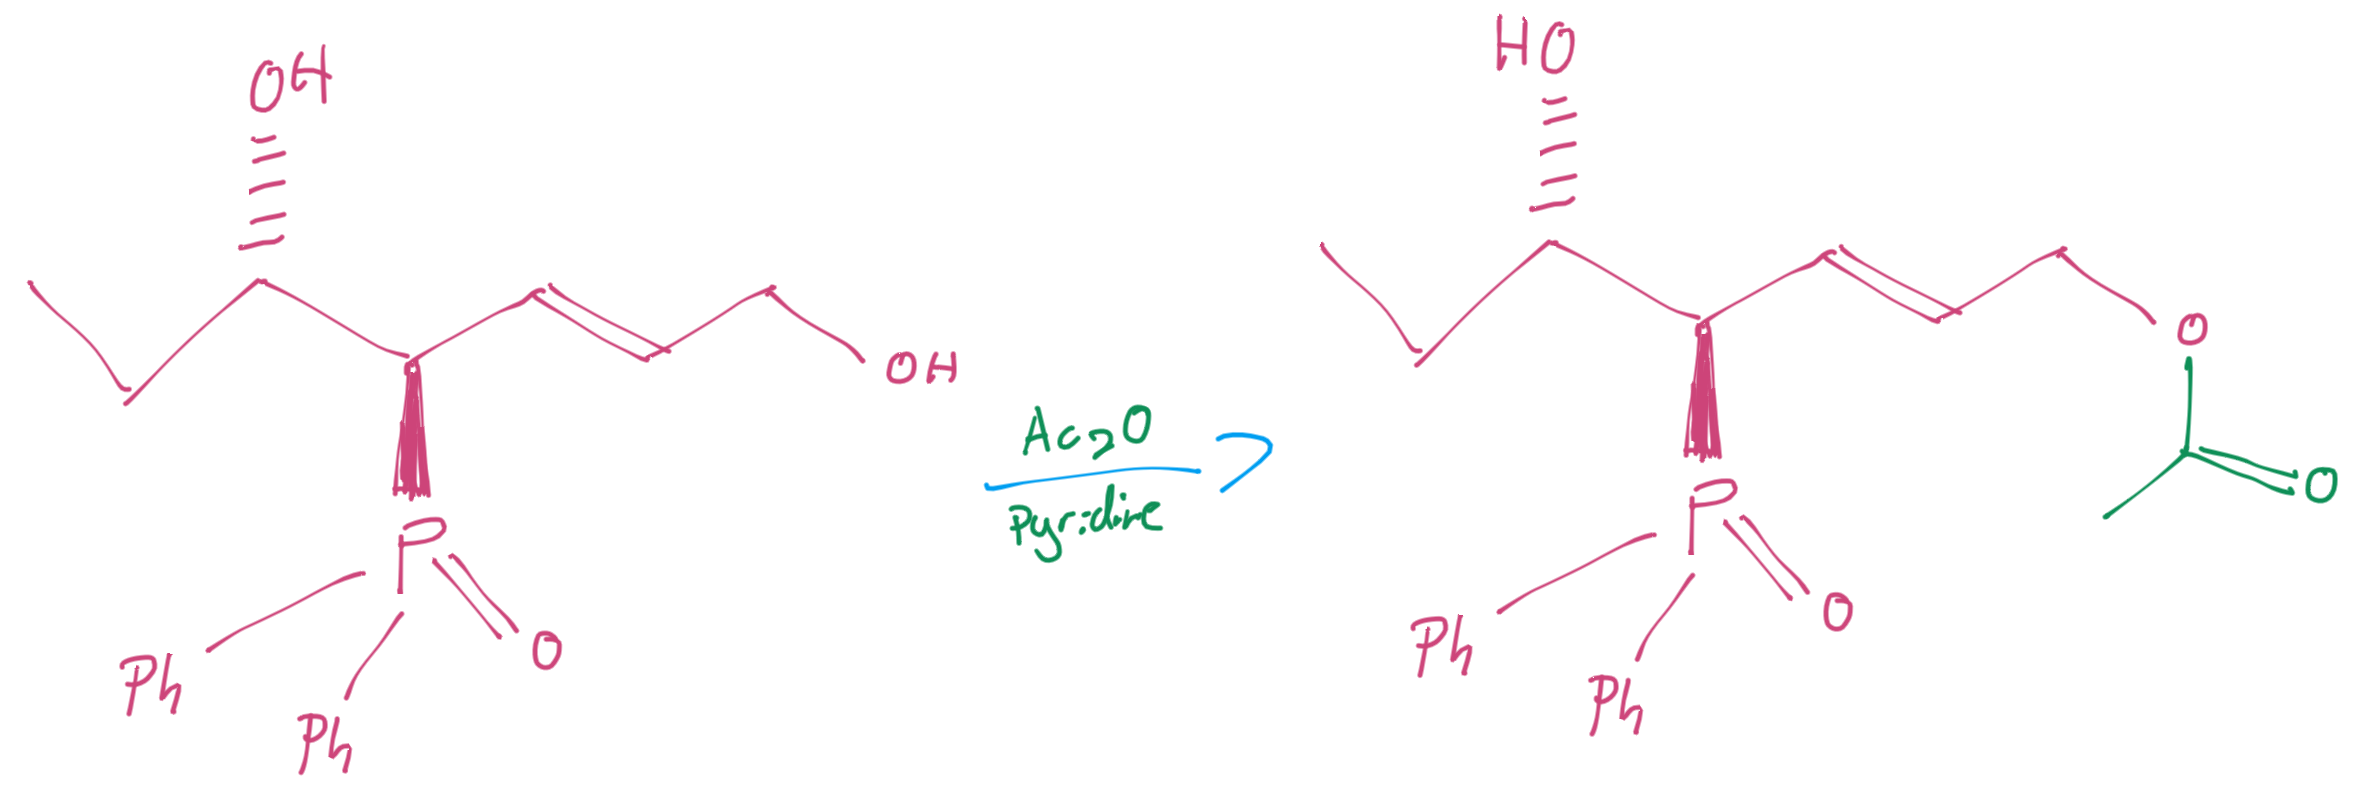 OH
OH
P
O
Ph
Ph
Ac₂O
Pyridine
HO
O
O
P
O
Ph
Ph